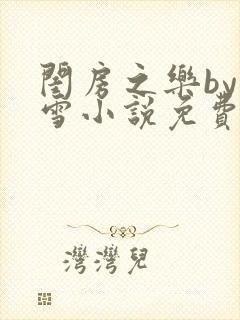 閨房之樂by
雪小說免費
灣灣兒